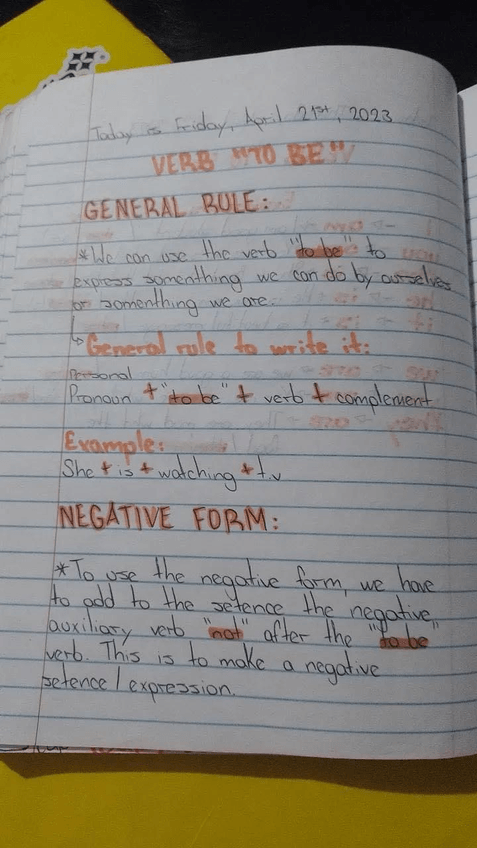 Today is Friday, April 21st, 2023
VERB "TO BE"
GENERAL RULE:
*We can use the verb "to be" to
express somenthing we can do by ourselves
or somenthing we are.
↳General rule to write it:
Personal
Pronoun + "to be" + verb + complement
Example:
She + is + watching + t.v
NEGATIVE FORM:
*To use the negative form, we have
to add to the setence the negative
auxiliary verb "not" after the "to be"
verb. This is to make a negative
setence / expression.